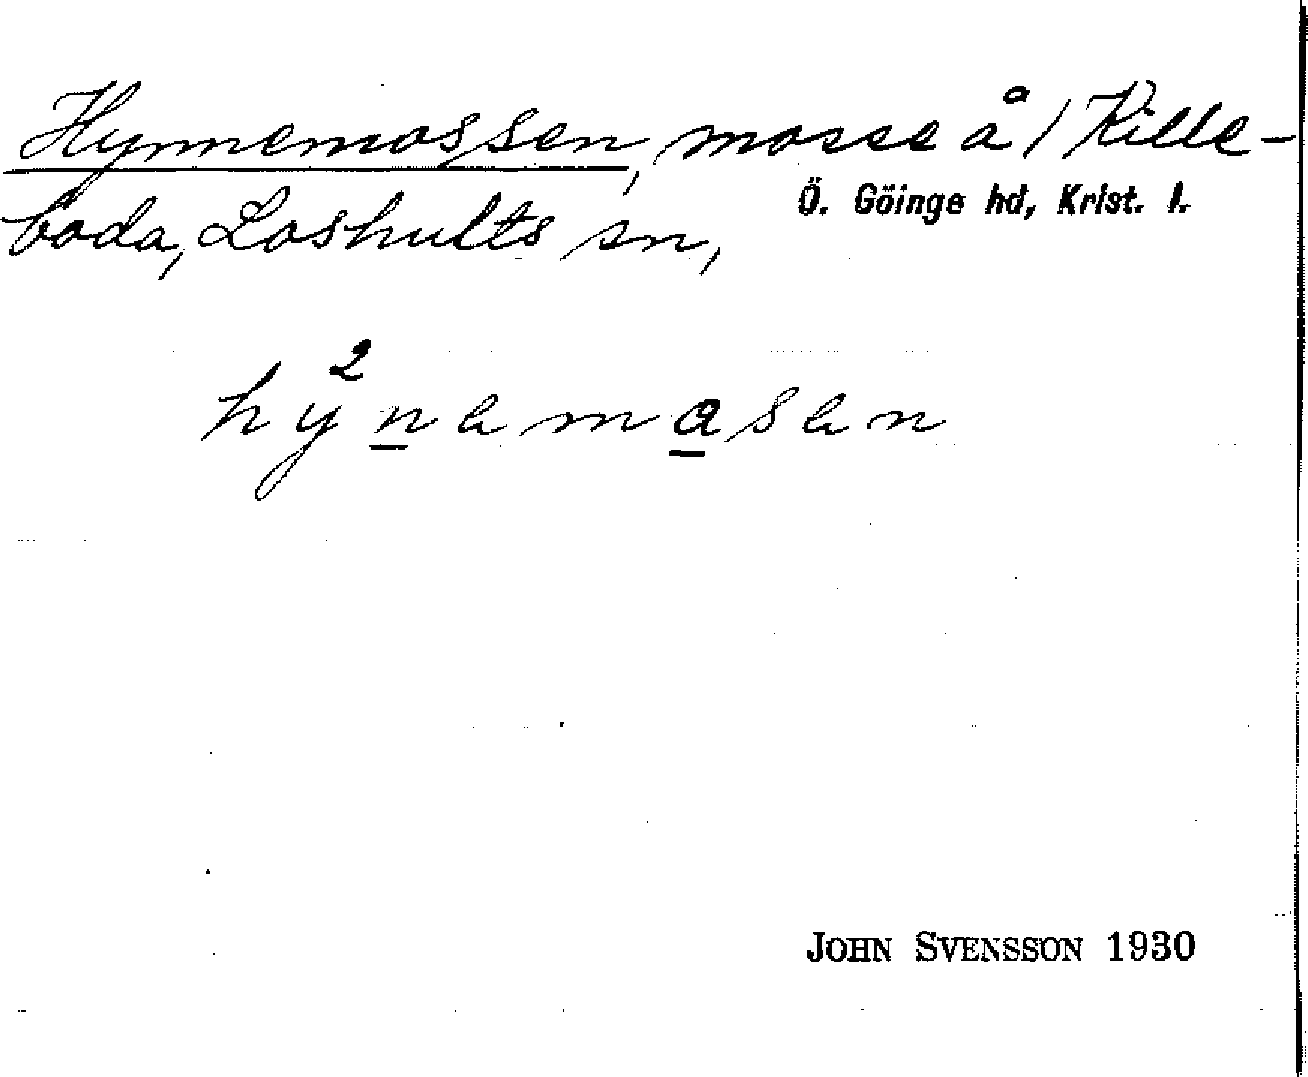 Hynnemossen, mosse å / Kille-
boda, Loshults sn,
Ö. Göinge hd, Krist. l.
hy²nemasen
JOHN SVENSSON 1930